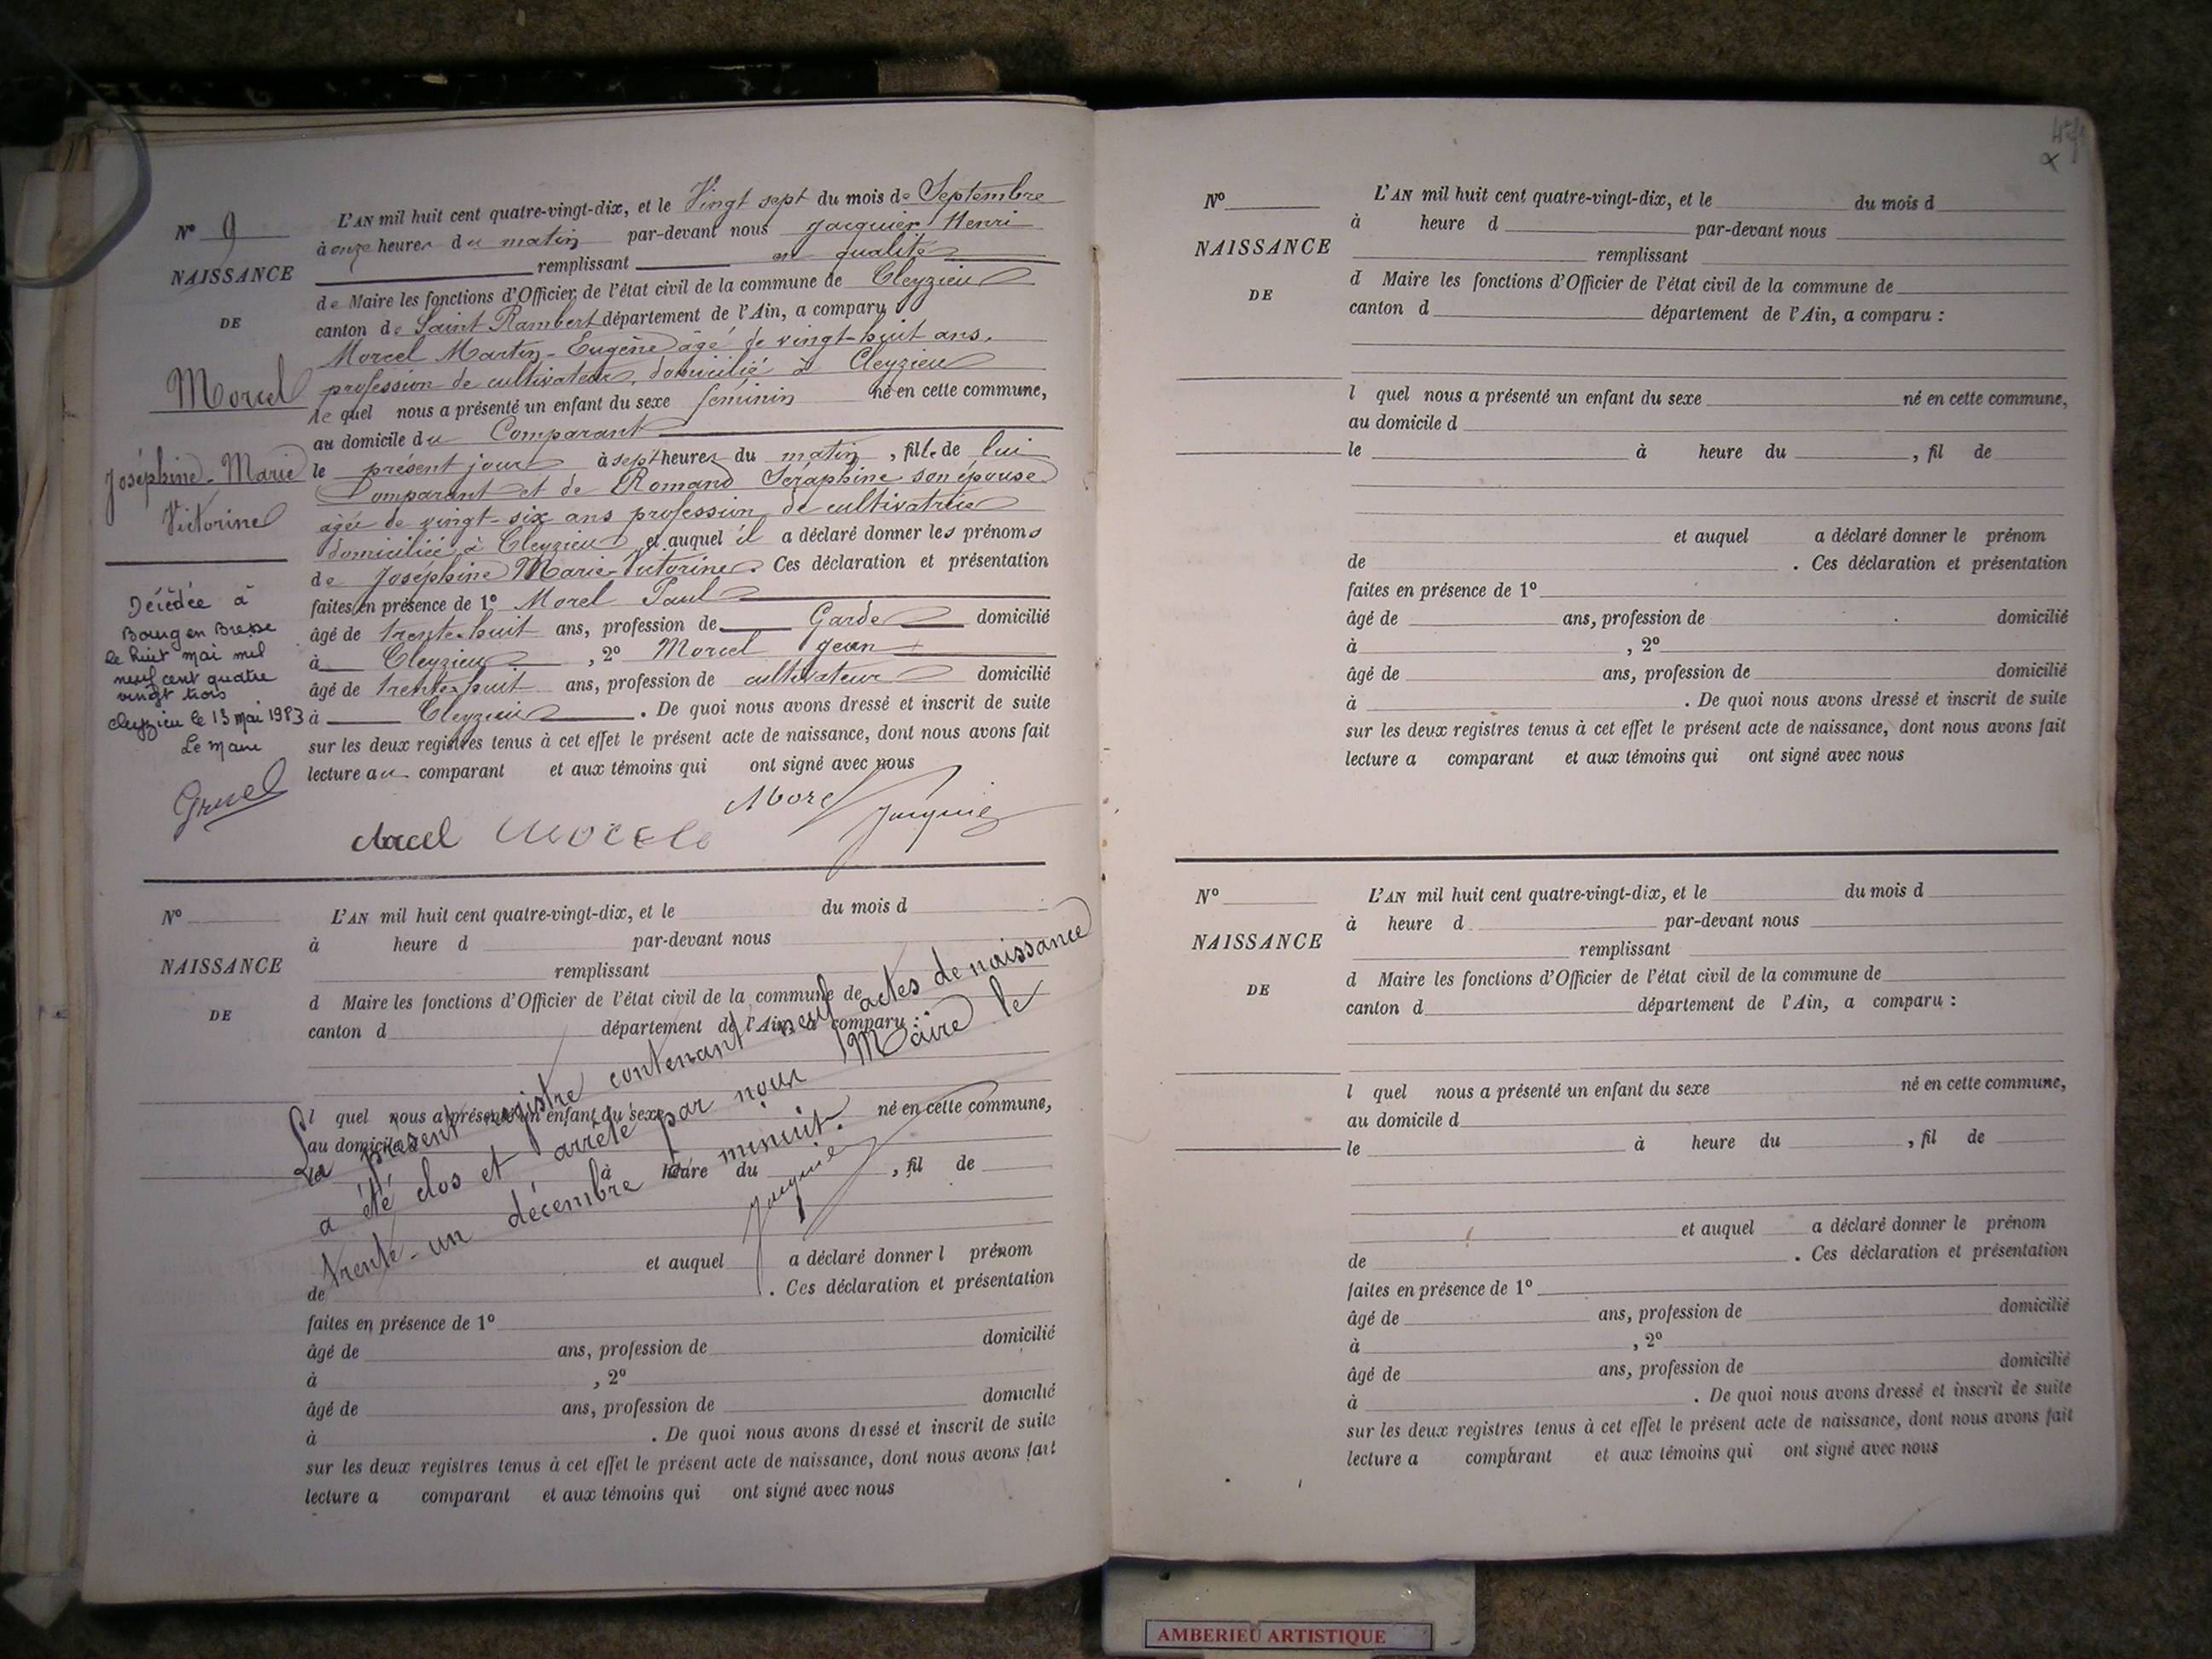 N° 9
NAISSANCE
DE
Morcel
Joséphine-Marie
Victorine
Décédée à
Bourg en Bresse
le huit mai mil
neuf cent quatre
vingt trois
Cleyzieu le 13 mai 1983
Le Maire
Gruel
L'AN mil huit cent quatre-vingt-dix, et le Vingt sept du mois de Septembre
à onze heures du matin par-devant nous Jacquier Henri
remplissant en qualité
de Maire les fonctions d'Officier de l'état civil de la commune de Cleyzieu
canton de Saint Rambert département de l'Ain, a comparu
Morcel Martin-Eugène âgé de vingt-huit ans,
profession de cultivateur, domicilié à Cleyzieu
le quel nous a présenté un enfant du sexe féminin né en cette commune,
au domicile du Comparant
le présent jour à sept heures du matin, fille de lui
Comparant et de Romand Séraphine son épouse
âgée de vingt-six ans profession de cultivatrice
domiciliée à Cleyzieu et auquel il a déclaré donner les prénoms
de Joséphine Marie-Victorine. Ces déclaration et présentation
faites en présence de 1° Morel Paul
âgé de trente-huit ans, profession de Garde domicilié
à Cleyzieu, 2° Morcel Jean
âgé de trente-huit ans, profession de cultivateur domicilié
à Cleyzieu. De quoi nous avons dressé et inscrit de suite
sur les deux registres tenus à cet effet le présent acte de naissance, dont nous avons fait
lecture au comparant et aux témoins qui ont signé avec nous
Morel Jacquier
Morcel Morcel
N°
NAISSANCE
DE
L'AN mil huit cent quatre-vingt-dix, et le du mois d
à heure d par-devant nous
remplissant
d Maire les fonctions d'Officier de l'état civil de la commune de
canton d département de l'Ain, a comparu :
l quel nous a présenté un enfant du sexe né en cette commune,
au domicile d
le à heure du , fil de
et auquel a déclaré donner l prénom
de . Ces déclaration et présentation
faites en présence de 1°
âgé de ans, profession de domicilié
à , 2°
âgé de ans, profession de domicilié
à . De quoi nous avons dressé et inscrit de suite
sur les deux registres tenus à cet effet le présent acte de naissance, dont nous avons fait
lecture a comparant et aux témoins qui ont signé avec nous
Le présent registre contenant neuf actes de naissance
a été clos et arrêté par nous Maire le
trente-un décembre minuit.
Jacquier
N°
NAISSANCE
DE
L'AN mil huit cent quatre-vingt-dix, et le du mois d
à heure d par-devant nous
remplissant
d Maire les fonctions d'Officier de l'état civil de la commune de
canton d département de l'Ain, a comparu :
l quel nous a présenté un enfant du sexe né en cette commune,
au domicile d
le à heure du , fil de
et auquel a déclaré donner le prénom
de . Ces déclaration et présentation
faites en présence de 1°
âgé de ans, profession de domicilié
à , 2°
âgé de ans, profession de domicilié
à . De quoi nous avons dressé et inscrit de suite
sur les deux registres tenus à cet effet le présent acte de naissance, dont nous avons fait
lecture a comparant et aux témoins qui ont signé avec nous
N°
NAISSANCE
DE
L'AN mil huit cent quatre-vingt-dix, et le du mois d
à heure d par-devant nous
remplissant
d Maire les fonctions d'Officier de l'état civil de la commune de
canton d département de l'Ain, a comparu :
l quel nous a présenté un enfant du sexe né en cette commune,
au domicile d
le à heure du , fil de
et auquel a déclaré donner le prénom
de . Ces déclaration et présentation
faites en présence de 1°
âgé de ans, profession de domicilié
à , 2°
âgé de ans, profession de domicilié
à . De quoi nous avons dressé et inscrit de suite
sur les deux registres tenus à cet effet le présent acte de naissance, dont nous avons fait
lecture a comparant et aux témoins qui ont signé avec nous
AMBERIEU ARTISTIQUE